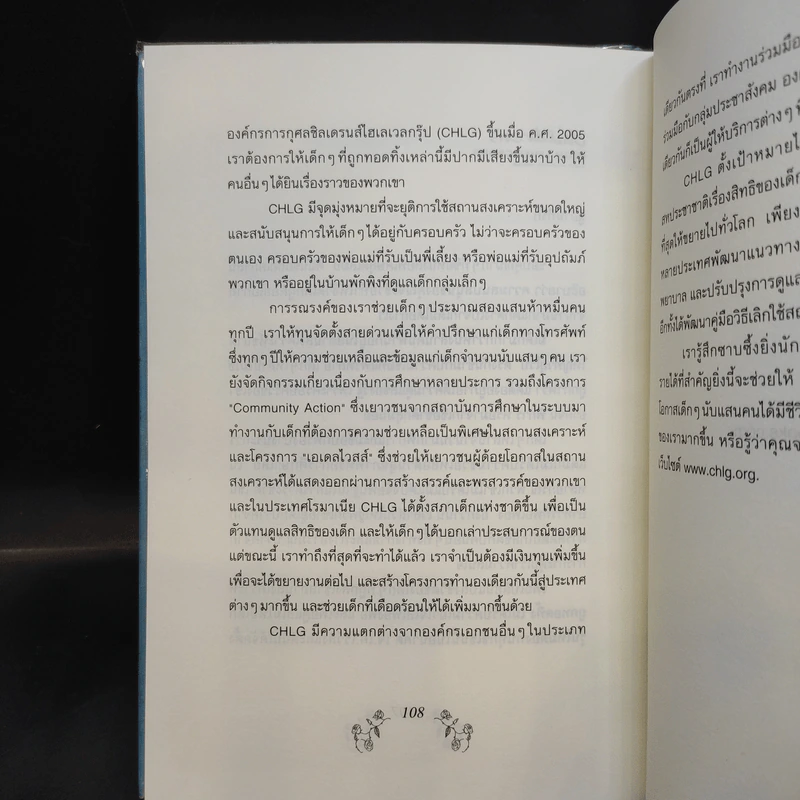 องค์กรการกุศลชิลเดรนส์ไฮเลเวลกรุ๊ป (CHLG) ขึ้นเมื่อ ค.ศ. 2005
เราต้องการให้เด็กๆ ที่ถูกทอดทิ้งเหล่านี้มีปากมีเสียงขึ้นมาบ้าง ให้
คนอื่นๆ ได้ยินเรื่องราวของพวกเขา
CHLG มีจุดมุ่งหมายที่จะยุติการใช้สถานสงเคราะห์ขนาดใหญ่
และสนับสนุนการให้เด็กๆ ได้อยู่กับครอบครัว ไม่ว่าจะครอบครัวของ
ตนเอง ครอบครัวของพ่อแม่ที่รับเป็นพี่เลี้ยง หรือพ่อแม่ที่รับอุปถัมภ์
พวกเขา หรืออยู่ในบ้านพักพิงที่ดูแลเด็กกลุ่มเล็กๆ
การรณรงค์ของเราช่วยเด็กๆ ประมาณสองแสนห้าหมื่นคน
ทุกปี เราให้ทุนจัดตั้งสายด่วนเพื่อให้คำปรึกษาแก่เด็กทางโทรศัพท์
ซึ่งทุกๆ ปีให้ความช่วยเหลือและข้อมูลแก่เด็กจำนวนนับแสนๆ คน เรา
ยังจัดกิจกรรมเกี่ยวเนื่องกับการศึกษาหลายประการ รวมถึงโครงการ
"Community Action" ซึ่งเยาวชนจากสถาบันการศึกษาในระบบมา
ทำงานกับเด็กที่ต้องการความช่วยเหลือเป็นพิเศษในสถานสงเคราะห์
และโครงการ "เอเดลไวสส์" ซึ่งช่วยให้เยาวชนผู้ด้อยโอกาสในสถาน
สงเคราะห์ได้แสดงออกผ่านการสร้างสรรค์และพรสวรรค์ของพวกเขา
และในประเทศโรมาเนีย CHLG ได้ตั้งสภาเด็กแห่งชาติขึ้น เพื่อเป็น
ตัวแทนดูแลสิทธิของเด็ก และให้เด็กๆ ได้บอกเล่าประสบการณ์ของตน
แต่ขณะนี้ เราทำถึงที่สุดที่จะทำได้แล้ว เราจำเป็นต้องมีเงินทุนเพิ่มขึ้น
เพื่อจะได้ขยายงานต่อไป และสร้างโครงการทำนองเดียวกันนี้สู่ประเทศ
ต่างๆ มากขึ้น และช่วยเด็กที่เดือดร้อนให้ได้เพิ่มมากขึ้นด้วย
CHLG มีความแตกต่างจากองค์กรเอกชนอื่นๆ ในประเภท
108
เดียวกันตรงที่ เราทำงานร่วมมือ
ร่วมมือกับกลุ่มประชาสังคม
เดียวกันก็เป็นผู้ให้บริการต่างๆ
CHLG ตั้งเป้าหมาย
สหประชาชาติเรื่องสิทธิของเด็ก
ที่สุดให้ขยายไปทั่วโลก เพียง
หลายประเทศพัฒนาแนวทาง
พยาบาล และปรับปรุงการดูแล
อีกทั้งได้พัฒนาคู่มือวิธีเลิกใช้
เรารู้สึกซาบซึ้งยิ่งนัก
รายได้ที่สำคัญยิ่งนี้จะช่วยให้
โอกาสเด็กๆ นับแสนคนได้มี
ของเรามากขึ้น หรือรู้ว่าคุณ
เว็บไซต์ www.chlg.org.